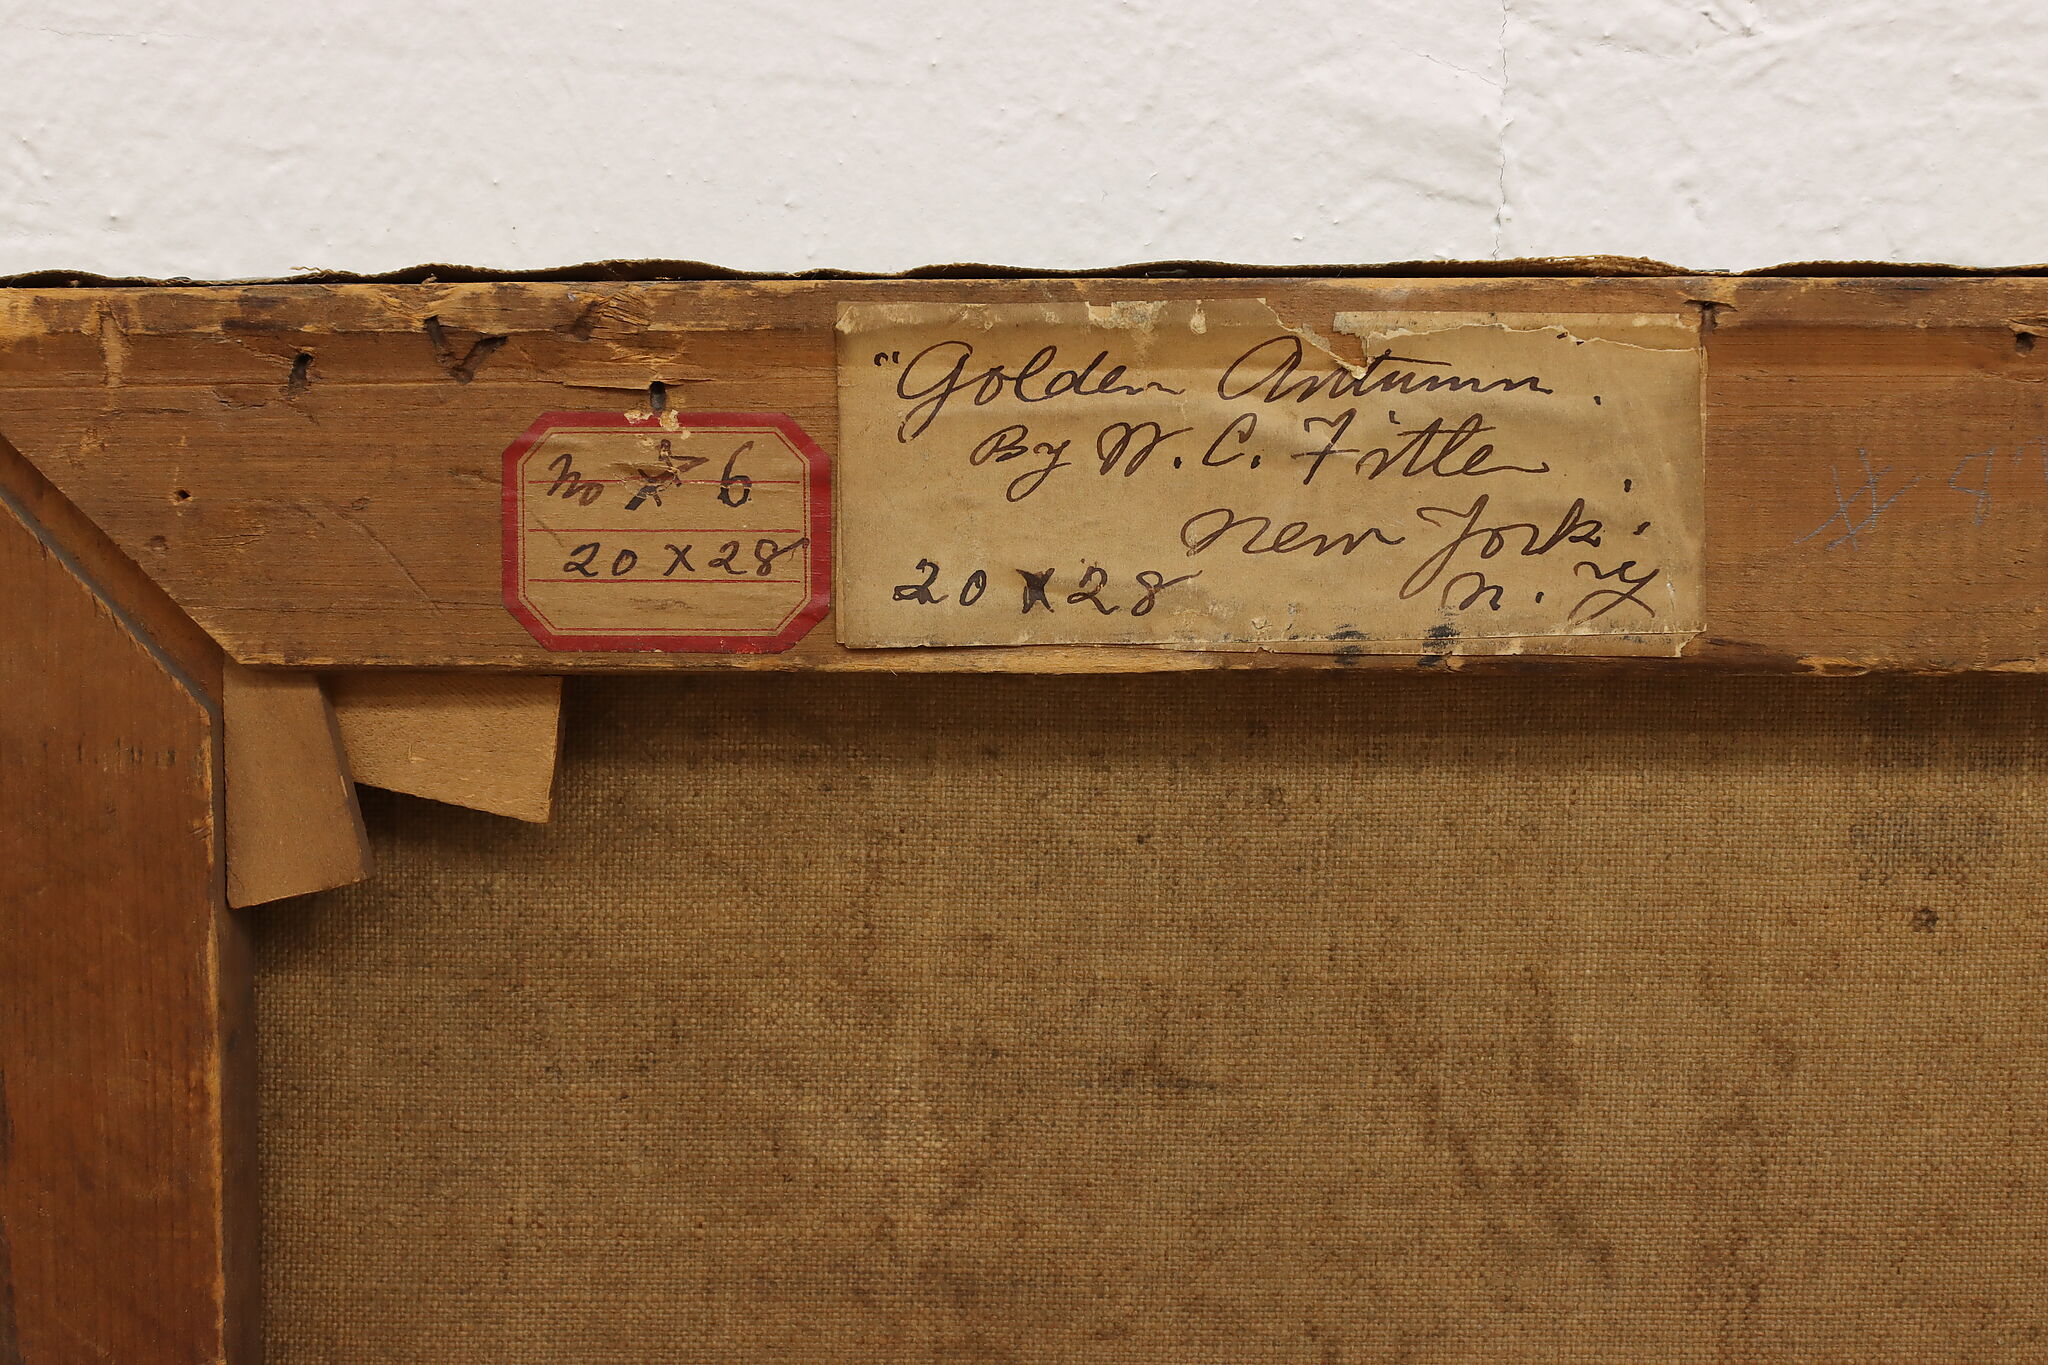 No 6
20 x 28
"Golden Autumn.
By W. C. Fitler
New York.
20 x 28 N. Y
#